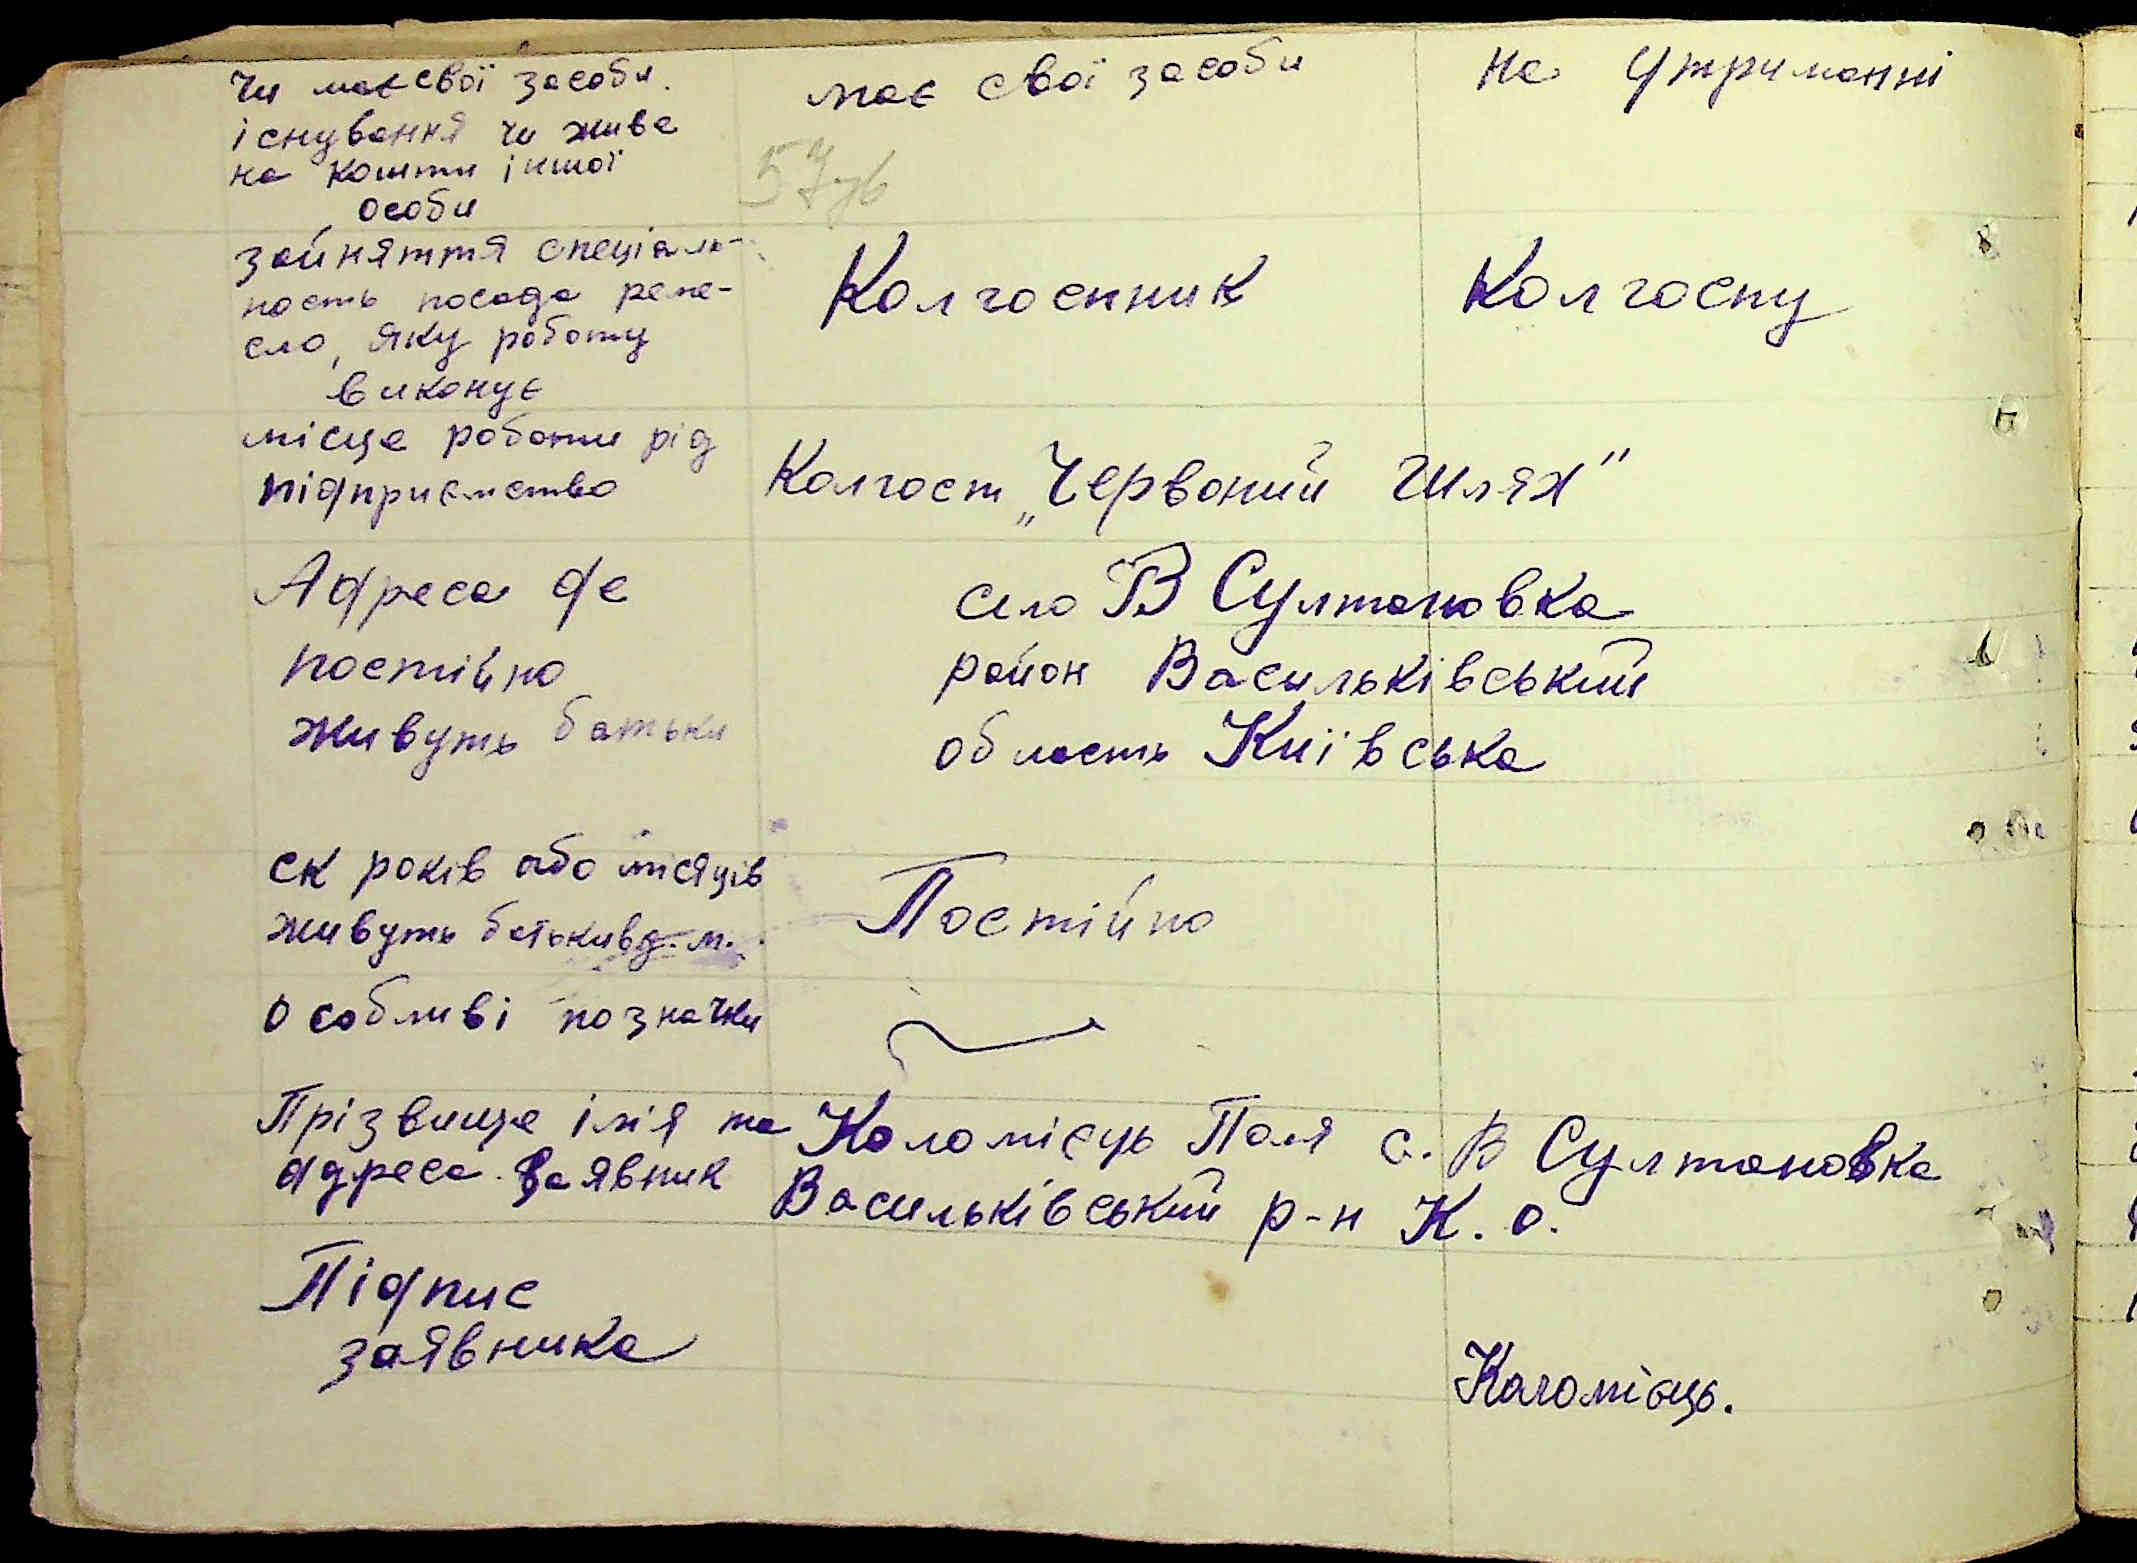 Чи має свої засоби.
існування чи живе
на кошти іншої
особи
має свої засоби
на утриманні
зайняття спеціаль-
ность посада реме-
сло, яку роботу
виконує
Колгоспник
Колгоспу
місце роботи рід
підприємство
Колгосп „Червоний шлях"
Адреса де
постійно
живуть батьки
село В Султановка
район Васильківський
область Київська
ск років або місяців
живуть батьки в д. м.
Постійно
особливі позначки
Прізвище ім'я та
адреса заявник
Коломієць Поля с. В Султановка
Васильківський р-н К. о.
Підпис
заявника
Коломієць.